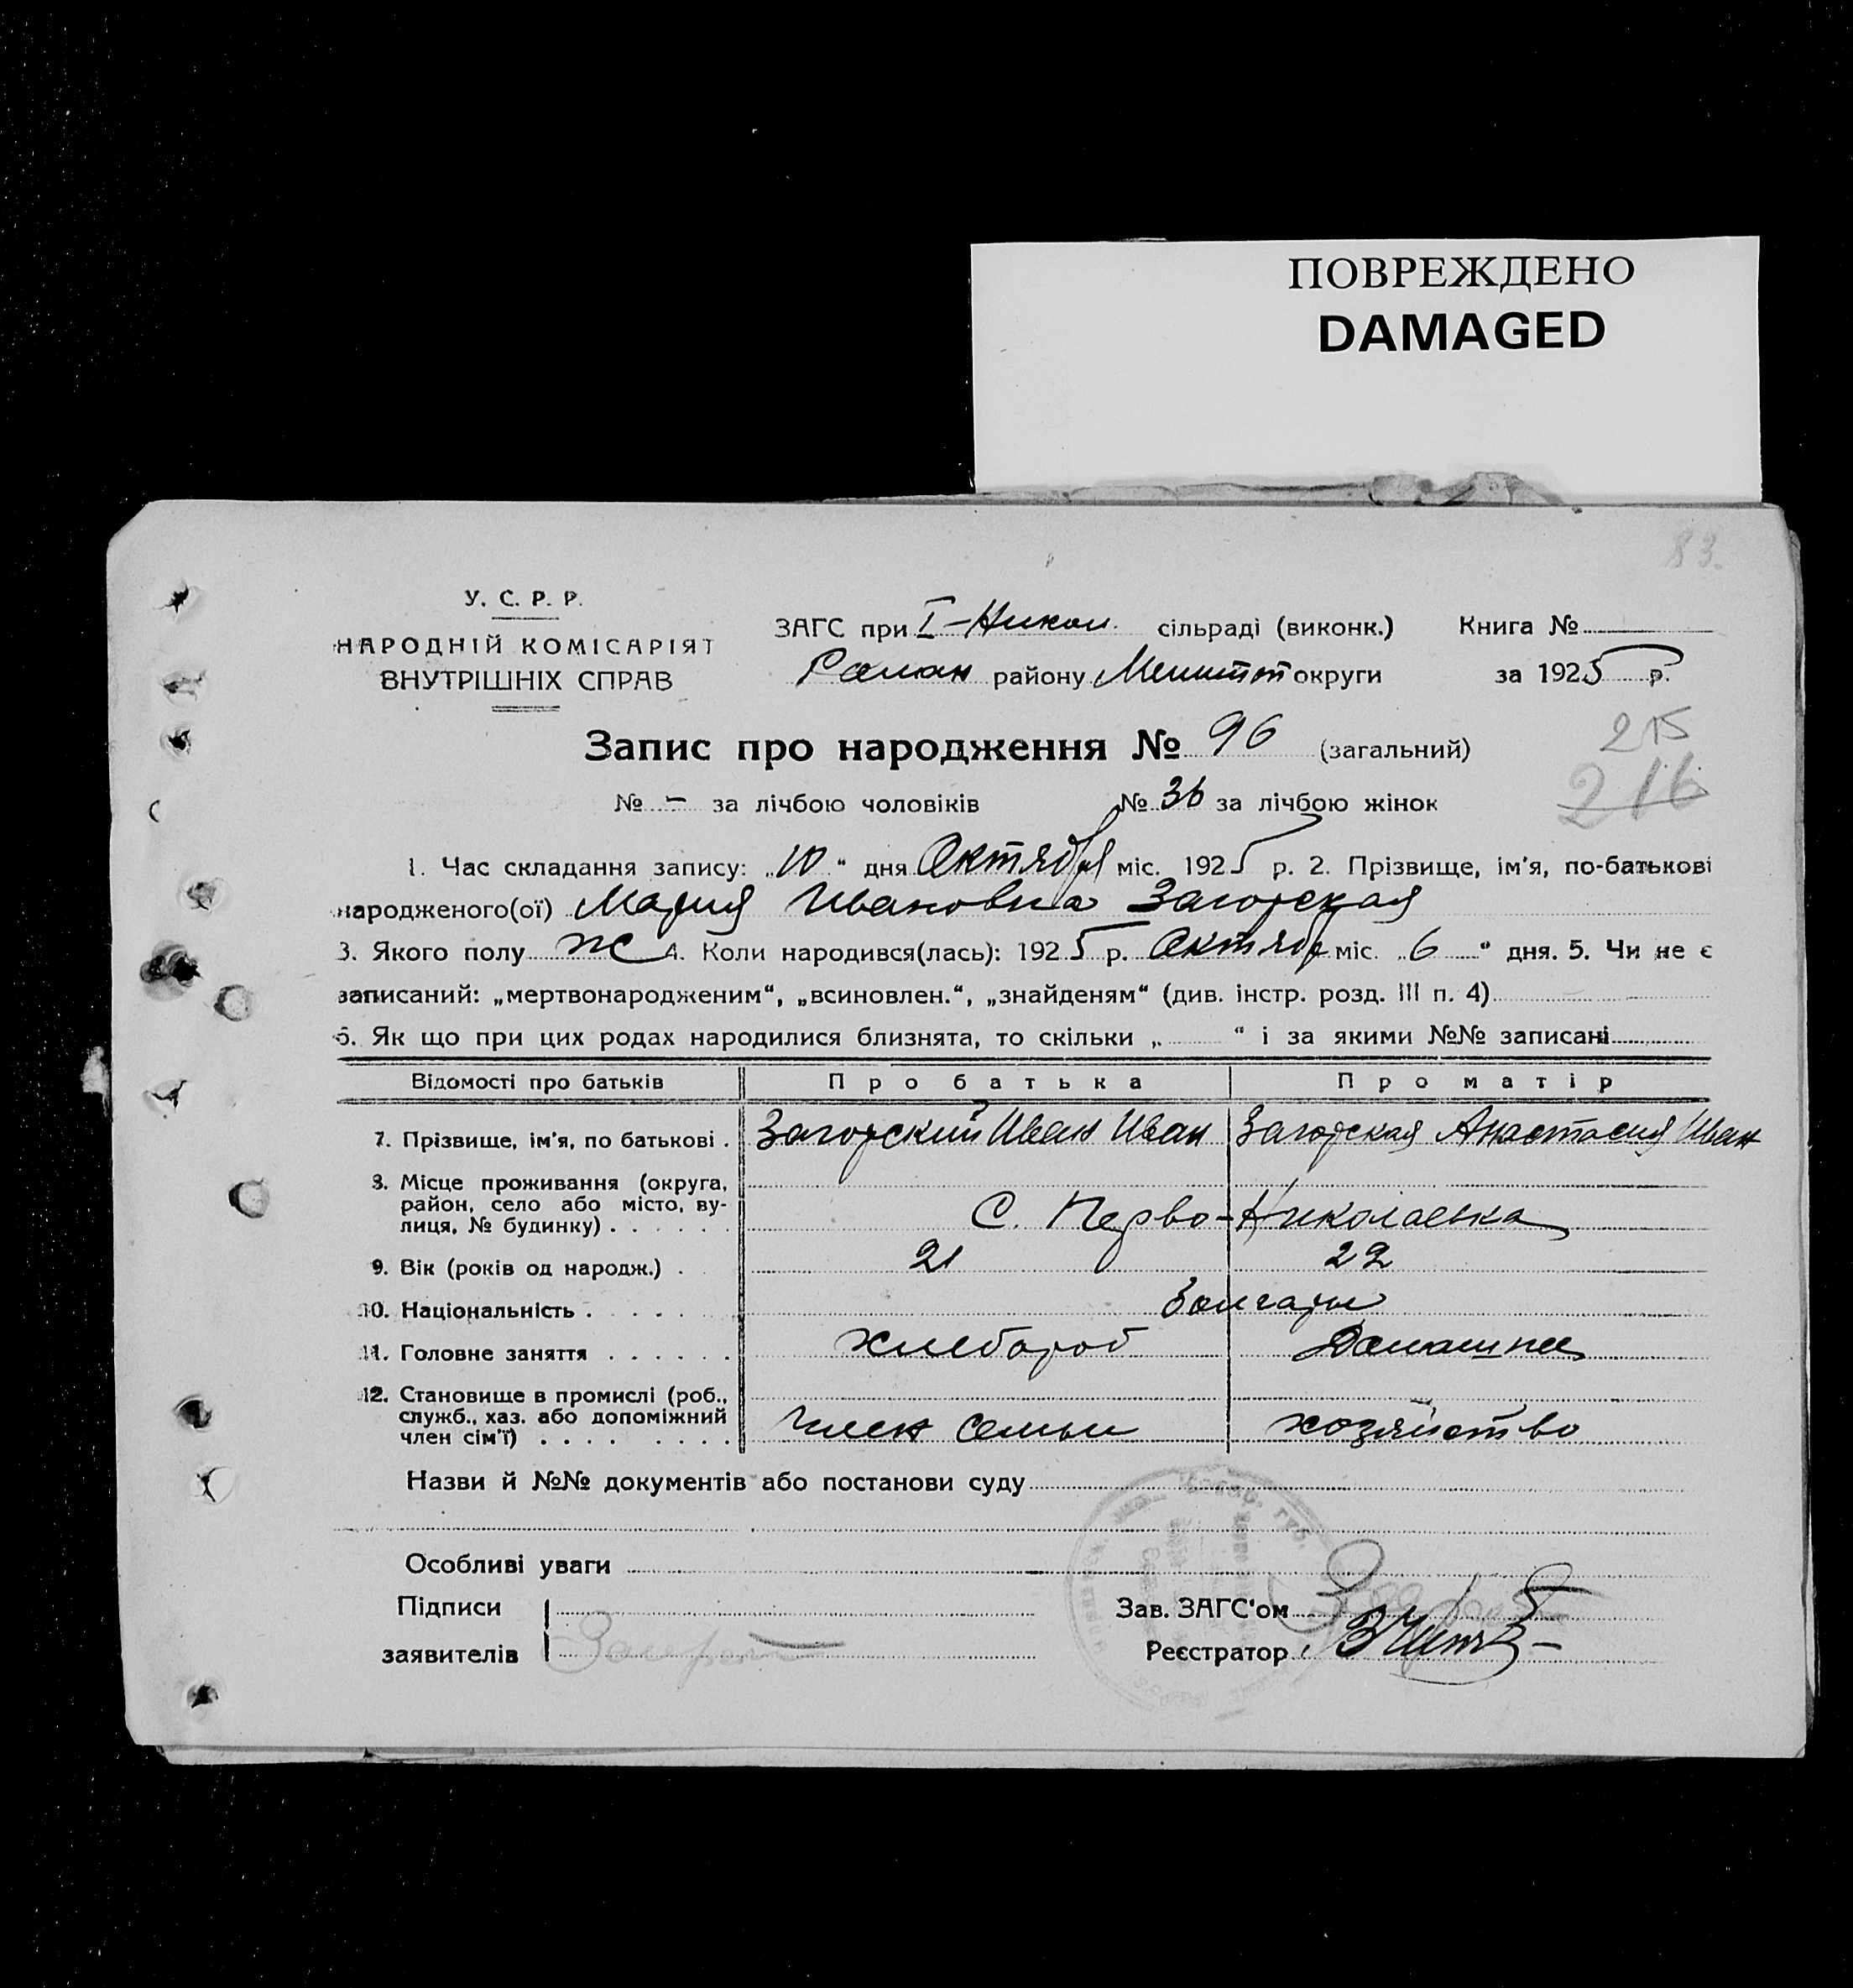 ПОВРЕЖДЕНО
DAMAGED
83.
У. С. Р. Р.
НАРОДНІЙ КОМІСАРІЯТ
ВНУТРІШНІХ СПРАВ
ЗАГС при I-Никол. сільраді (виконк.) Книга №
Роман району Мелитоп округи за 1925 р.
Запис про народження № 96 (загальний)
215
216
№ - за лічбою чоловіків № 36 за лічбою жінок
1. Час складання запису: „10" дня Октября міс. 1925 р. 2. Прізвище, ім'я, по-батькові
народженого(ої) Мария Ивановна Загорская
3. Якого полу ж 4. Коли народився(лась): 1925 р. Октябр міс. „6" дня. 5. Чи не є
записаний: „мертвонародженим", „всиновлен.", „знайденям" (див. інстр. розд. III п. 4)
6. Як що при цих родах народилися близнята, то скільки „ " і за якими №№ записані
Відомості про батьків Про батька Про матір
7. Прізвище, ім'я, по батькові . Загорский Иван Иван Загорская Анастасия Иван
8. Місце проживання (округа,
район, село або місто, ву-
лиця, № будинку) . . . . . . С. Перво-Николаевка
9. Вік (років од народж.) . 21 22
10. Національність . . . . . . Болгары
11. Головне заняття . . . . . . Хлебороб Домашнее
12. Становище в промислі (роб.,
служб., хаз. або допоміжний
член сім'ї) . . . . . . . . . Член семьи хозяйство
Назви й №№ документів або постанови суду
Особливі уваги
Підписи
заявителів
Зав. ЗАГС'ом
Реєстратор